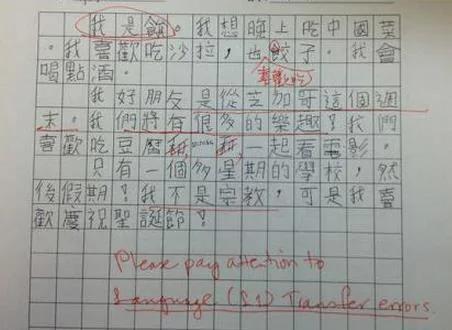 我是餓。我想晚上吃中國菜
。我喜歡吃沙拉，也餃子。我會
喜歡吃
喝點酒。
我好朋友是從芝加哥這個週
末。我們將有很多的樂趣？我們
喜歡吃豆腐 一起看電影。
只有一個多星期的學校，然
後假期？我不是宗教，可是我喜
歡慶祝聖誕節？
Please pay attention to
Language (L1) Transfer errors.